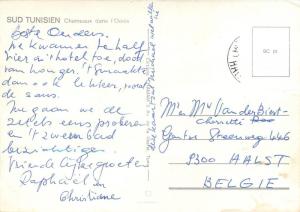 SUD TUNISIEN Chameaux dans l'Oasis
Beste Ouders,
we kwamen te half
vier a/h hotel toe, doodt
van honger. 't smaakte
dan ook lekker, vooral
de saus.
Nu gaan we de
zetels eens proberen
en 't zwembad
bezichtigen.
Vriendelijke groeten
Raphaël en
Christiane
Mr en Mw Van der Biest-
Gentse Steenweg 446
9300 AALST
BELGIE